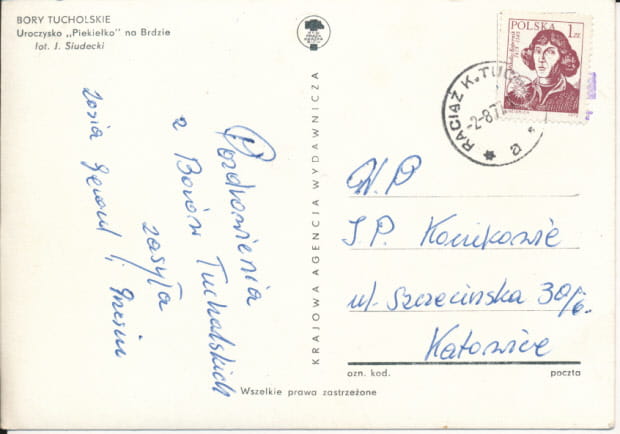 BORY TUCHOLSKIE
Uroczysko „Piekiełko" na Brdzie
fot. J. Siudecki
Pozdrowienia
z Borów Tucholskich
zasyła
Zosia Gerard i
KRAJOWA AGENCJA WYDAWNICZA
POLSKA 1 ZŁ
RACIĄŻ K.TUCH
-2-8.7
a
W.P
J.P. Kocikowie
ul. Szczecińska 30/6.
Katowice
ozn. kod. poczta
Wszelkie prawa zastrzeżone